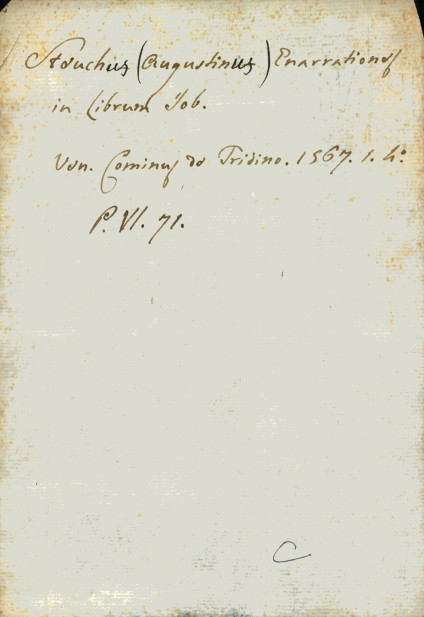 Steuchus (Augustinus) Enarrationes
in Librum Job.
Ven. Cominus de Tridino. 1567. 1. 4º
P. VI. 71.
C